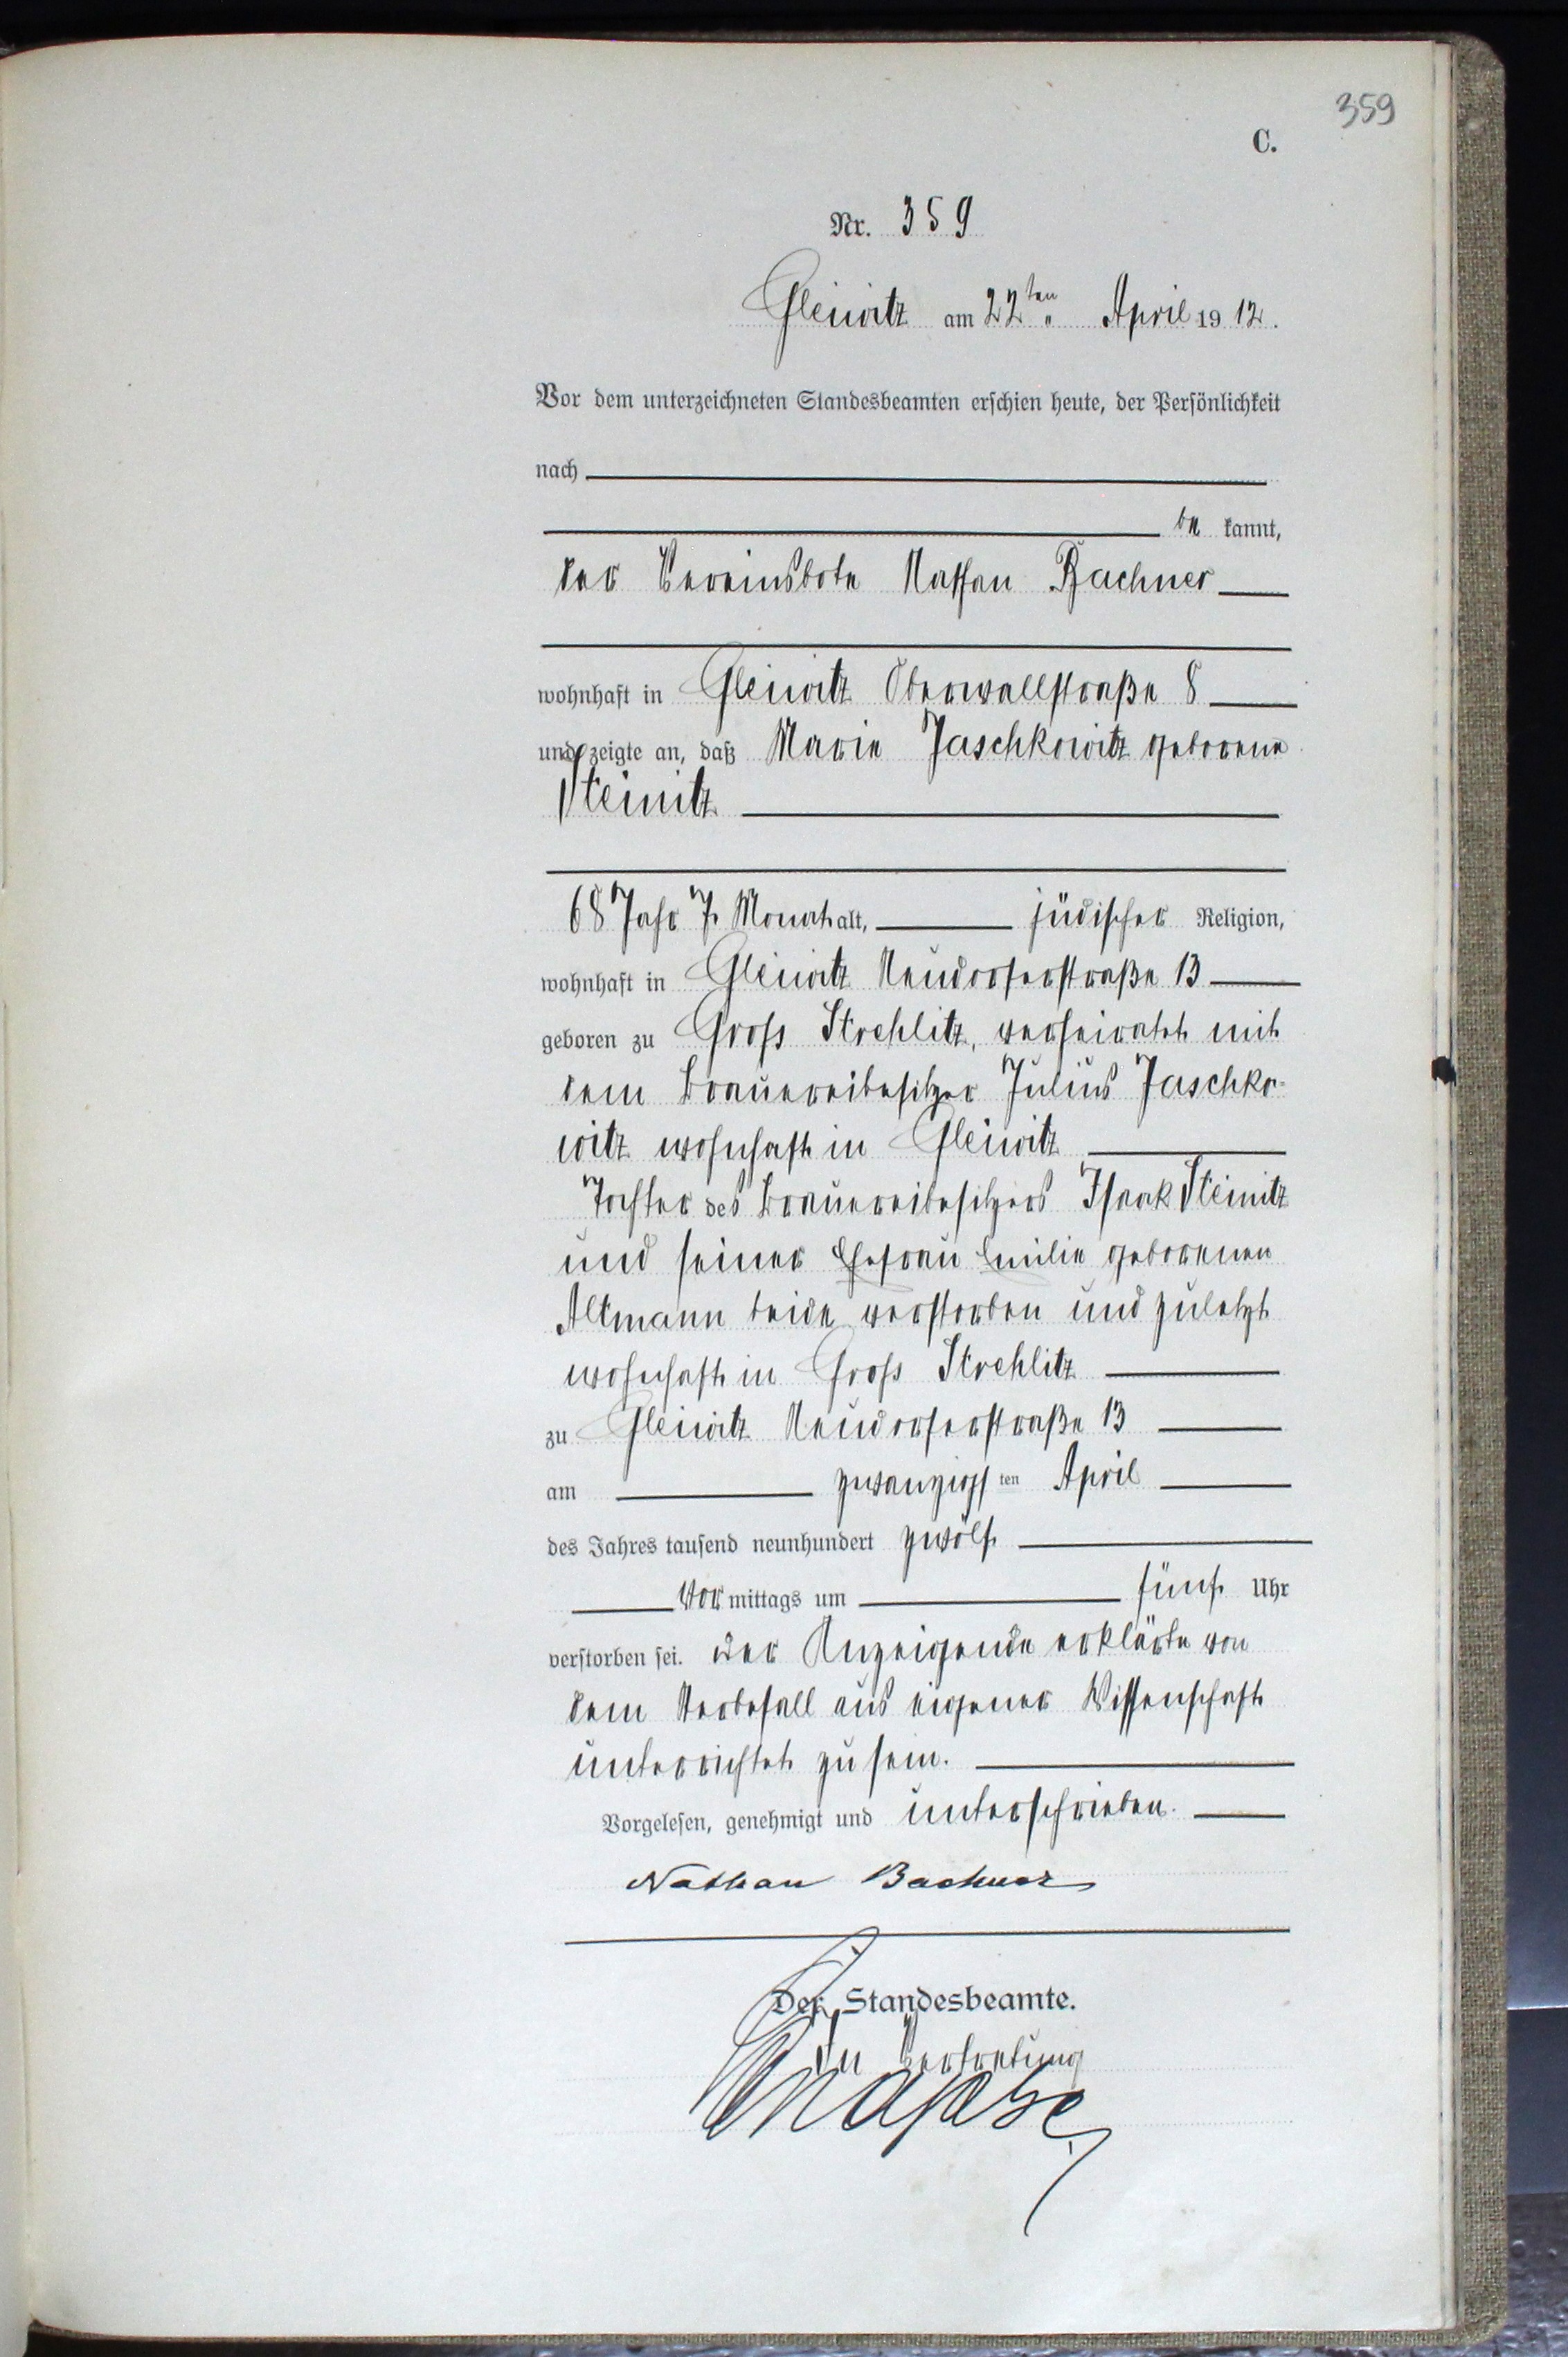 359
C.
Nr. 359
Gleiwitz am 22ten April 1912.
Vor dem unterzeichneten Standesbeamten erschien heute, der Persönlichkeit
nach
be kannt,
der Vereinsbote Nathan Bachner
wohnhaft in Gleiwitz Oberwallstraße 8
und zeigte an, daß Marie Jaschkowitz geborene
Steinitz
68 Jahr 7 Monat alt, jüdischer Religion,
wohnhaft in Gleiwitz Neudorferstraße 13
geboren zu Gross Strehlitz, verheiratet mit
dem Brauereibesitzer Julius Jaschko-
witz wohnhaft in Gleiwitz
Tochter des Brauereibesitzers Isaak Steinitz
und seiner Ehefrau Emilie geborenen
Altmann beide verstorben und zuletzt
wohnhaft in Gross Strehlitz
zu Gleiwitz Neudorferstraße 13
am zwanzigsten April
des Jahres tausend neunhundert zwölf
Vormittags um fünf Uhr
verstorben sei. Der Anzeigende erklärte von
dem Sterbefall aus eigener Wissenschaft
unterrichtet zu sein.
Vorgelesen, genehmigt und unterschrieben.
Nathan Bachner
Der Standesbeamte.
In Vertretung